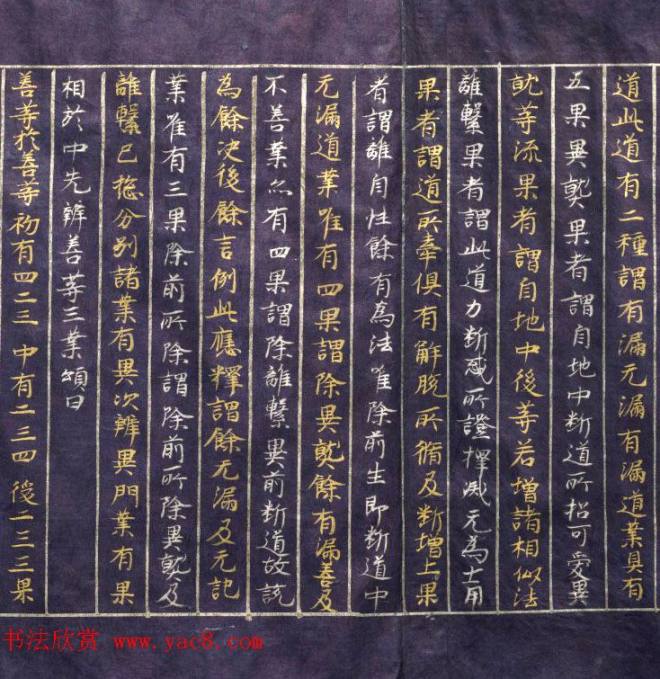 道此道有二種謂有漏元漏有漏道業具有
五果異熟果者謂自地中断道所招可愛異
就等流果者謂自地中後等若增諸相似法
離繫果者謂此道力断惑所證擇滅元為士用
果者謂道所牽俱有解脫所脩及断增上果
者謂離自性餘有為法唯除前生即断道中
元漏道業唯有四果謂除異熟餘有漏善及
不善業亦有四果謂除離繫異前断道故說
為餘次後餘言例此應釋謂餘元漏及元記
業唯有三果除前所除謂除前所除異熟及
離繫已捴分別諸業有異次辨異門業有果
相於中先辨善等三業頌曰
善等於善等初有四二三 中有二三四 後二三三果
书法欣赏 www.yac8.com